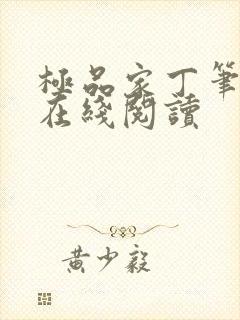 極品家丁筆
在綫閱讀
黄少毅